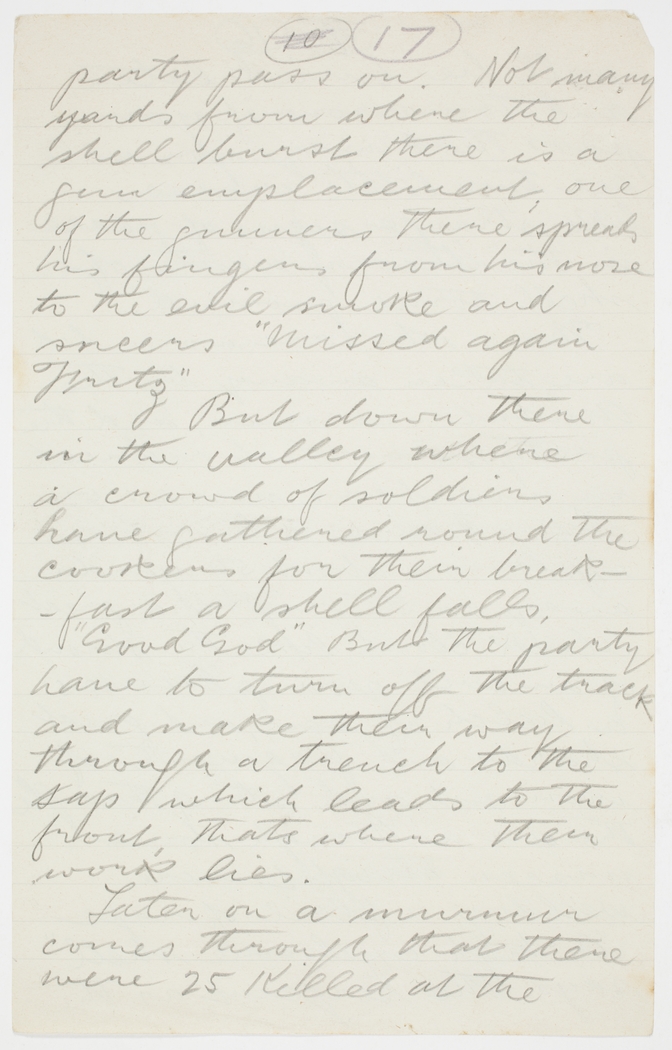 10 17
party pass on. Not many
yards from where the
shell burst there is a
gun emplacement, one
of the gunners there spreads
his fingers from his nose
to the evil smoke and
sneers "Missed again
Fritz"
But down there
in the valley where
a crowd of soldiers
have gathered round the
cookers for their break-
-fast a shell falls.
"Good God" But the party
have to turn off the track
and make their way
through a trench to the
sap which leads to the
front, thats where their
work lies.
Later on a murmur
comes through that there
were 25 killed at the